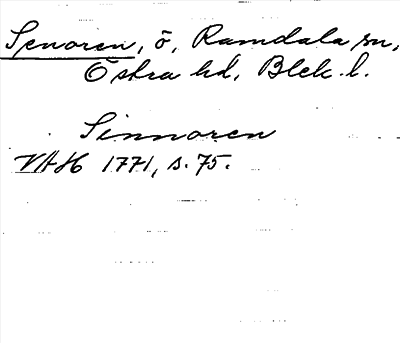 Senoren, ö, Ramdala sn,
Östra hd, Blek. l.
Sinnoren
VAH 1771, s. 75.